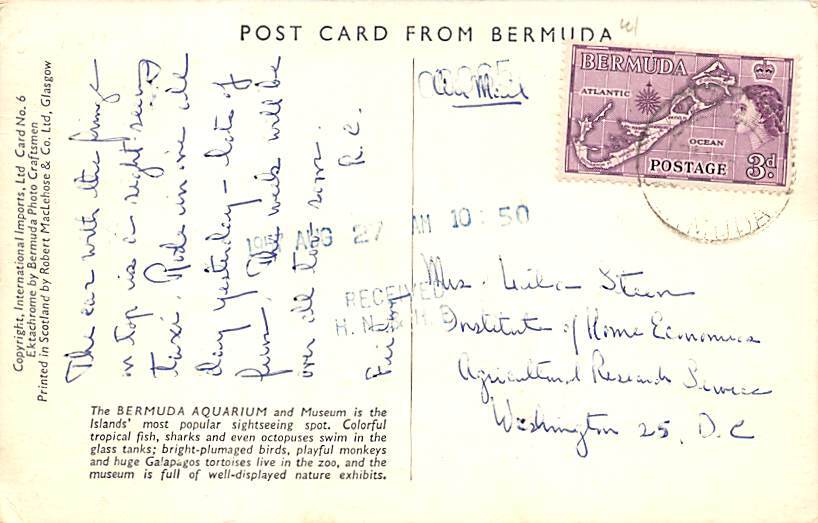 POST CARD FROM BERMUDA
Copyright, International Imports, Ltd Card No. 6
Ektachrome by Bermuda Photo Craftsmen
Printed in Scotland by Robert MacLehose & Co. Ltd, Glasgow
The car with the fringe
on top is a sight seeing
taxi. Rode in one all
day yesterday - lots of
fun. The week will be
over all too soon.
Friday R.C.
The BERMUDA AQUARIUM and Museum is the
Islands' most popular sightseeing spot. Colorful
tropical fish, sharks and even octopuses swim in the
glass tanks; bright-plumaged birds, playful monkeys
and huge Galapagos tortoises live in the zoo, and the
museum is full of well-displayed nature exhibits.
Air Mail
BERMUDA
ATLANTIC
OCEAN
POSTAGE 3d.
1957 AUG 27 AM 10:50
RECEIVED
H. N. & H. E.
Mrs. Steen
Institute of Home Economics
Agricultural Research Service
Washington 25, D.C